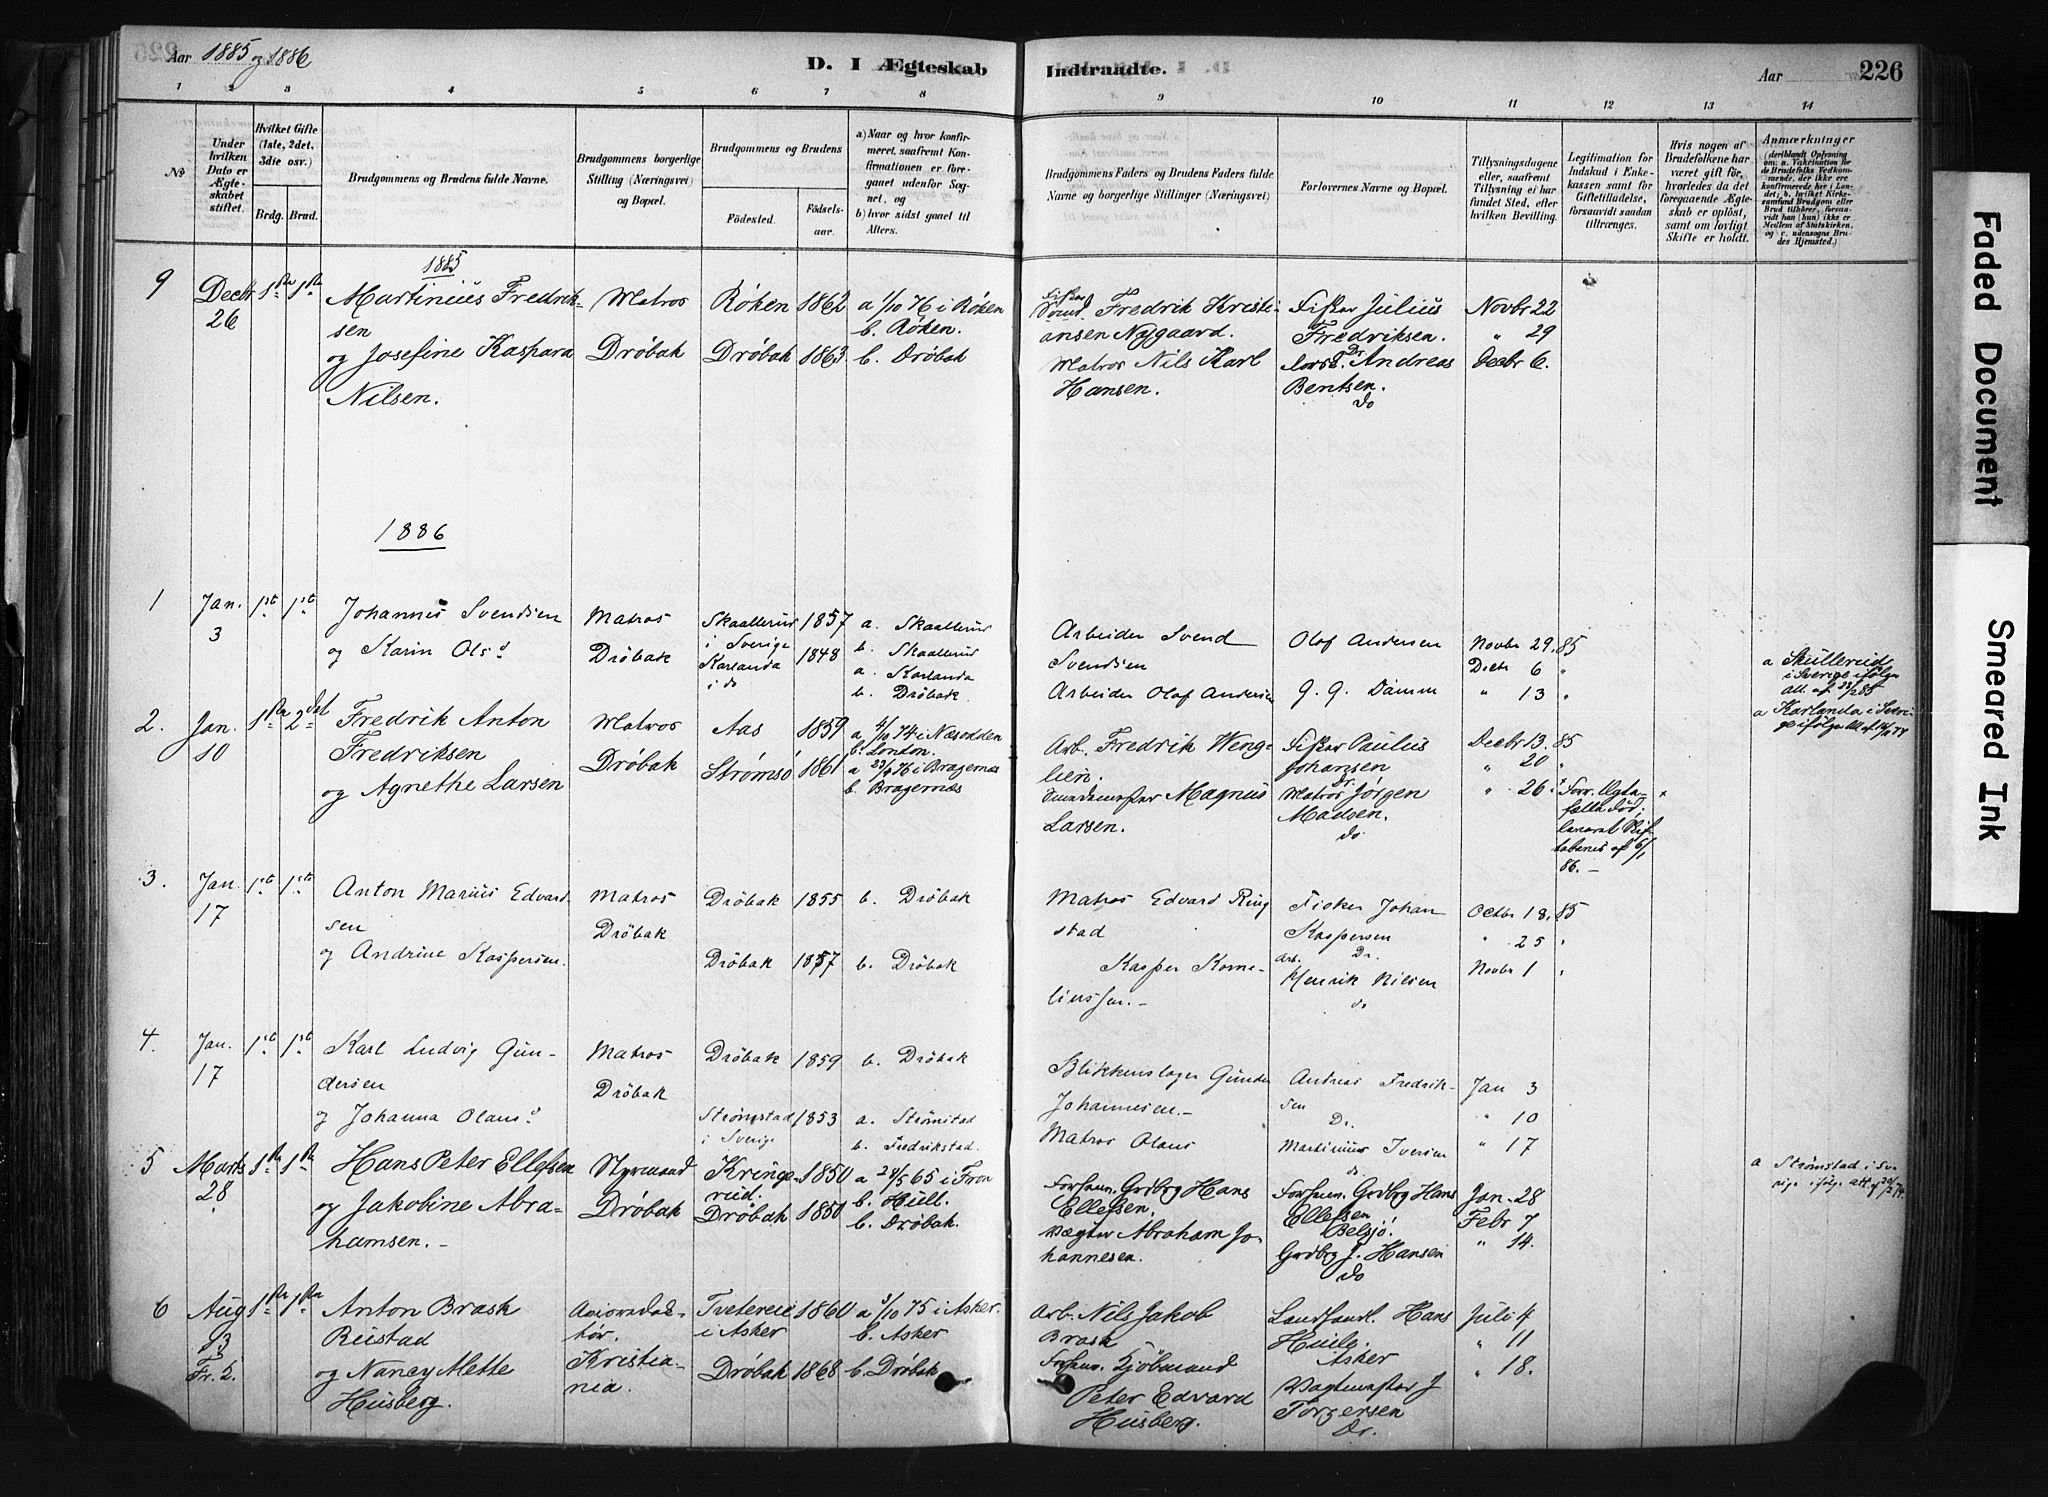 Aar 1885 og 1886
D. I Ægteskab
Indtraadte.
Aar
226
1 2 3 4 5 6 7 8
9 10 11 12 13 14
No
Under hvilken Dato er Ægteskabet stiftet.
Hvilket Gifte (1ste, 2det, 3die osv.)
Brdg. Brud.
Brudgommens og Brudens fulde Navne.
Brudgommens borgerlige Stilling (Næringsvei) og Bopæl.
Brudgommens og Brudens
Födested.
Födselsaar.
a) Naar og hvor konfirmeret, saafremt Konfirmationen er foregaaet udenfor Sognet, og
b) hvor sidst gaaet til Alters.
Brudgommens Faders og Brudens Faders fulde Navne og borgerlige Stillinger (Næringsvei)
Forlovernes Navne og Bopæl.
Tillysningsdagene eller, saafremt Tillysning ei har fundet Sted, efter hvilken Bevilling.
Legitimation for Indskud i Enkekassen samt for Giftetilladelse, forsaavidt saadan tiltrænges.
Hvis nogen af Brudefolkene har været gift för, hvorledes da det foregaaende Ægteskab er oplöst, samt om lovligt Skifte er holdt.
Anmærkninger
(deriblandt Oplysning om: a. Vakcination for de Brudefolks Vedkommende, der ikke ere konfirmerede her i Landet; b. hvilket Kirkesamfund Brudgom eller Brud tilhörer, forsaavidt han (hun) ikke er Medlem af Statskirken, og c. udensogns Brudes Hjemsted.)
1885
9 Decbr 26 1ste 1ste
Martinius Fredriksen
og Josefine Kaspara Nilsen.
Matros Drøbak
Røken 1862 a 1/10 76 i Røken b. Røken.
Drøbak 1863 b. Drøbak
Fredrik Kristiansen Nygaard.
Matros Nils Karl Hansen.
Fisker Julius Fredriksen. Dr
Andreas Bentsen. do
Novbr 22 " 29 Decbr 6.
1886
1 Jan. 3 1st 1st
Johannes Svendsen
og Karin Olsd
Matros Drøbak
Skaallerud i Sverige 1857 a. Skaallerud b. Skaallerud
Karlanda i do 1848 a. Karlanda b. Drøbak
Arbeider Svend Svendsen
Arbeider Olaf Andersen
Olaf Andersen
G. G. Damm
Novbr 29. 85 Decbr 6 " " 13 "
a Skullerud i Sverige ifølge att. af
a Karlanda i Sverige ifølge att. af
2. Jan. 10 1ste 2det
Fredrik Anton Fredriksen
og Agnethe Larsen
Matros Drøbak
Aas 1859 a 4/10 74 i Næsodden b. London.
Strømsø 1861 a 23/9 76 i Bragernæs b. Bragernæs
Arb. Fredrik Wenglien.
Magnus Larsen.
Fisker Paulus Johansen Dr.
Matros Jørgen Madsen. do
Decbr 13. 85 " 20 " " 26
3. Jan. 17 1st 1ste
Anton Marius Edvardsen
og Andrine Kaspersen.
Matros Drøbak
Drøbak 1855 b. Drøbak
Drøbak 1857 b. Drøbak
Matros Edvard Ringstad
Kasper Korneliussen.-
Fisker Johan Kaspersen Dr.
Arb. Henrik Nilsen do
Octbr 18. 85 " 25 " Novbr 1 "
4. Jan. 17 1st 1st
Karl Ludvig Gundersen
og Johanna Olausd
Matros Drøbak
Drøbak 1859 b. Drøbak
Strømstad i Sverige 1853 a. Strømstad b. Fredrikstad.
Blikkenslager Gunder Johannesen.-
Matros Olaus
Andreas Fredriksen Dr.
Martinius Iversen do
Jan 3 " 10 " 17
a Strømstad i Sverige ifølge att. af
5 Marts 28 1ste 1ste
Hans Peter Ellefsen
og Jakobine Abrahamsen.-
Styrmand Drøbak
Kringerud. 1850 a 28/5 65 i Fron b. Hull.
Drøbak 1850 b. Drøbak.
Forhen. Grdbrg Hans Ellefsen.
Vægter Abraham Johannesen.
Forhen. Grdbrg Hans Ellefsen Belsjø.
Grdbrg J. Hansen do
Jan. 28 Febr 7 " 14.
6 Aug 13 Fr. 2. 1ste 1ste
Anton Brask Rustad
og Nancy Mette Husberg.
Avisredaktør. Kristiania.
Tveterei i Asker 1860 a 3/10 75 i Asker. b. Asker
Drøbak 1868 b. Drøbak
Arb. Nils Jakob Brask
Forhen. Kjøbmand Peter Edvard Husberg
Landhandl. Hans Asker
Vagtmester J Torgersen Dr.
Juli 4 " 11 " 18.
Faded Document
Smeared Ink